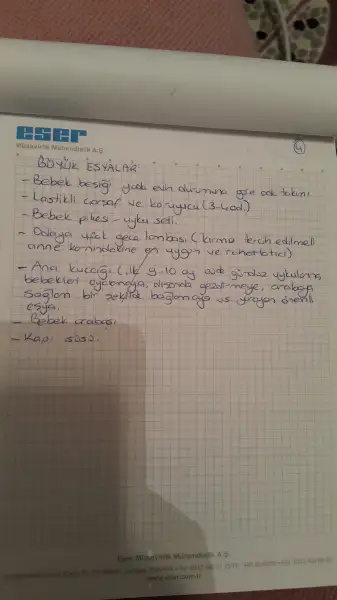 eser
Müşavirlik Mühendislik A.Ş.
4
BÜYÜK EŞYALAR
- Bebek beşiği yada evin durumuna göre oda takımı
- Lastikli çarşaf ve koruyucu (3-4 ad.)
- Bebek pikes - uyku seti.
- Odaya ışık gece lambası (kırmızı tercih edilmeli
anne karnındakine en uygun ve rahatlatıcı)
- Ana kucağı (ilk 9-10 ay evde gündüz uykularını,
bebekleri oyalamaya, dışarıda gezdirmeye, arabaya
sağlam bir şekilde bağlamaya vs yarayan önemli
eşya.
- Bebek arabası
- Kapı süsü.
Eser Müşavirlik Mühendislik A.Ş.
www.eser.com.tr